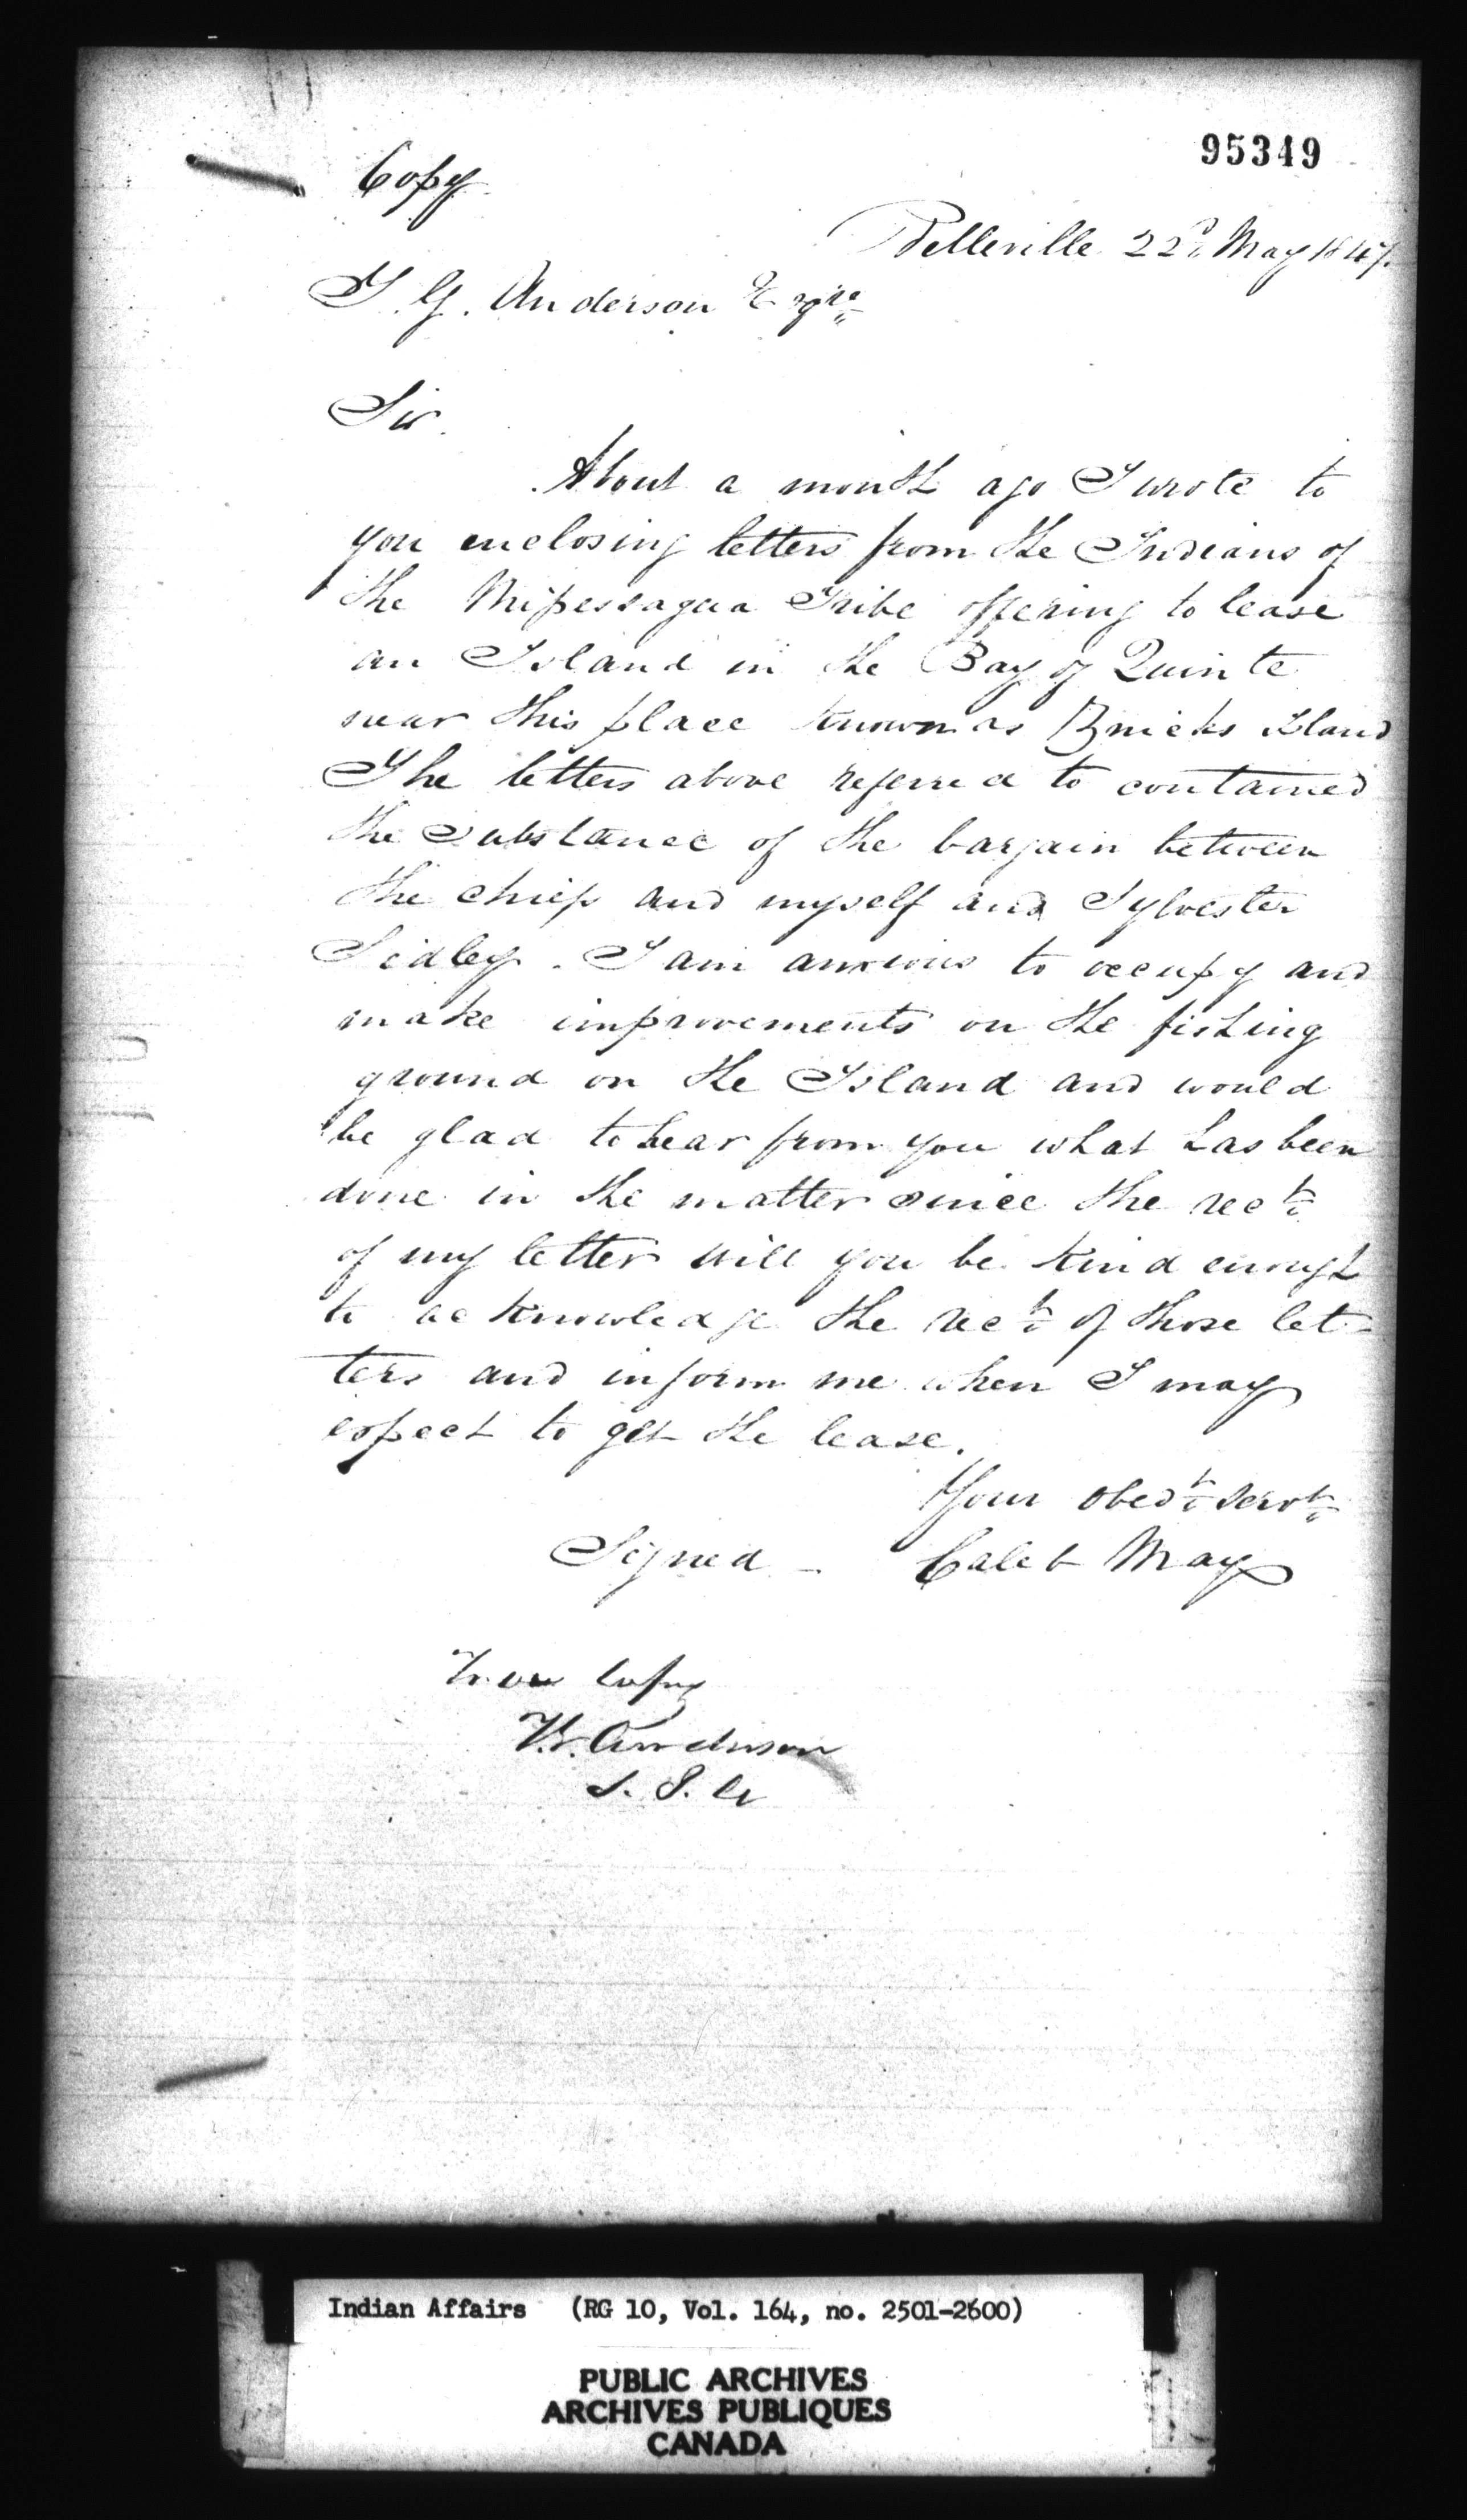 95349
Copy
Belleville 22d May 1847.
T. G. Anderson Esqre
Sir.
About a month ago I wrote to
you enclosing letters from the Indians of
the Missessagua Tribe offering to lease
an Island in the Bay of Quinte
near this place known as Island
The letters above referred to contained
the substance of the bargain between
the chiefs and myself and Sylvester
Sidley. I am anxious to occupy and
make improvements on the fishing
ground on the Island and would
be glad to hear from you what has been
done in the matter since the rect
of my letter will you be kind enough
to acknowledge the rect of those let-
ters and inform me when I may
expect to get the lease.
Your obedt servt
Signed - Caleb May
True Copy
Anderson
S. I. A
Indian Affairs (RG 10, Vol. 164, no. 2501-2600)
PUBLIC ARCHIVES
ARCHIVES PUBLIQUES
CANADA